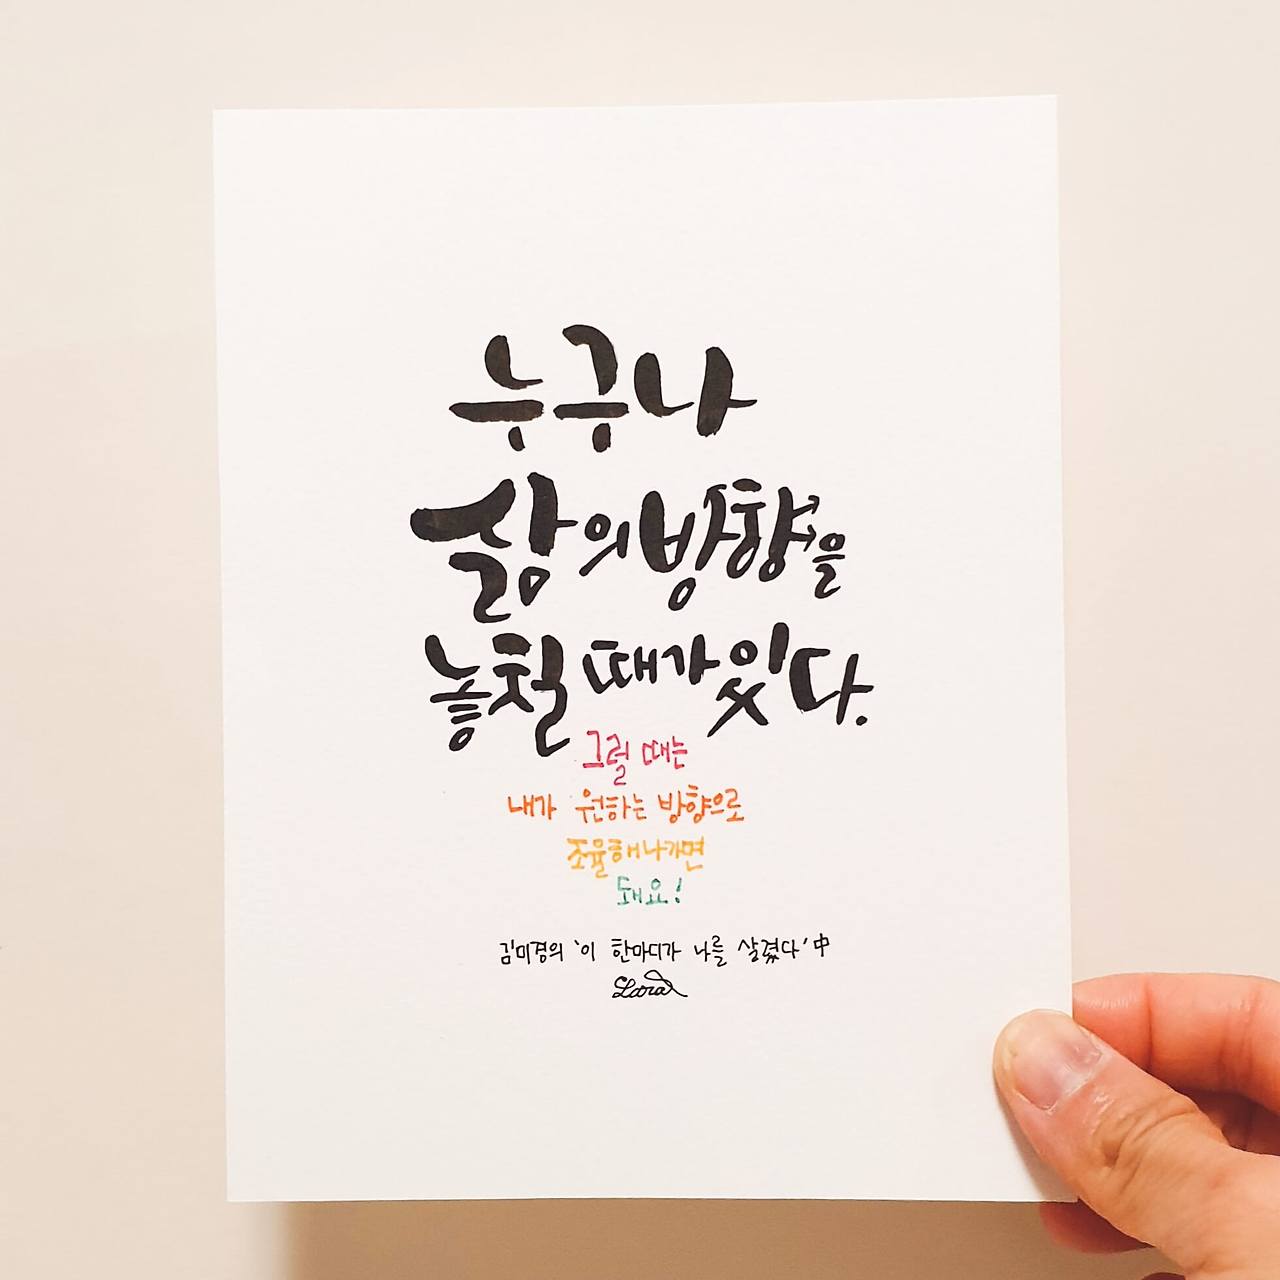 누구나
삶의 방향을
놓칠 때가 있다.
그럴 때는
내가 원하는 방향으로
조율해나가면
돼요!
김미경의 '이 한마디가 나를 살렸다' 中
Lara